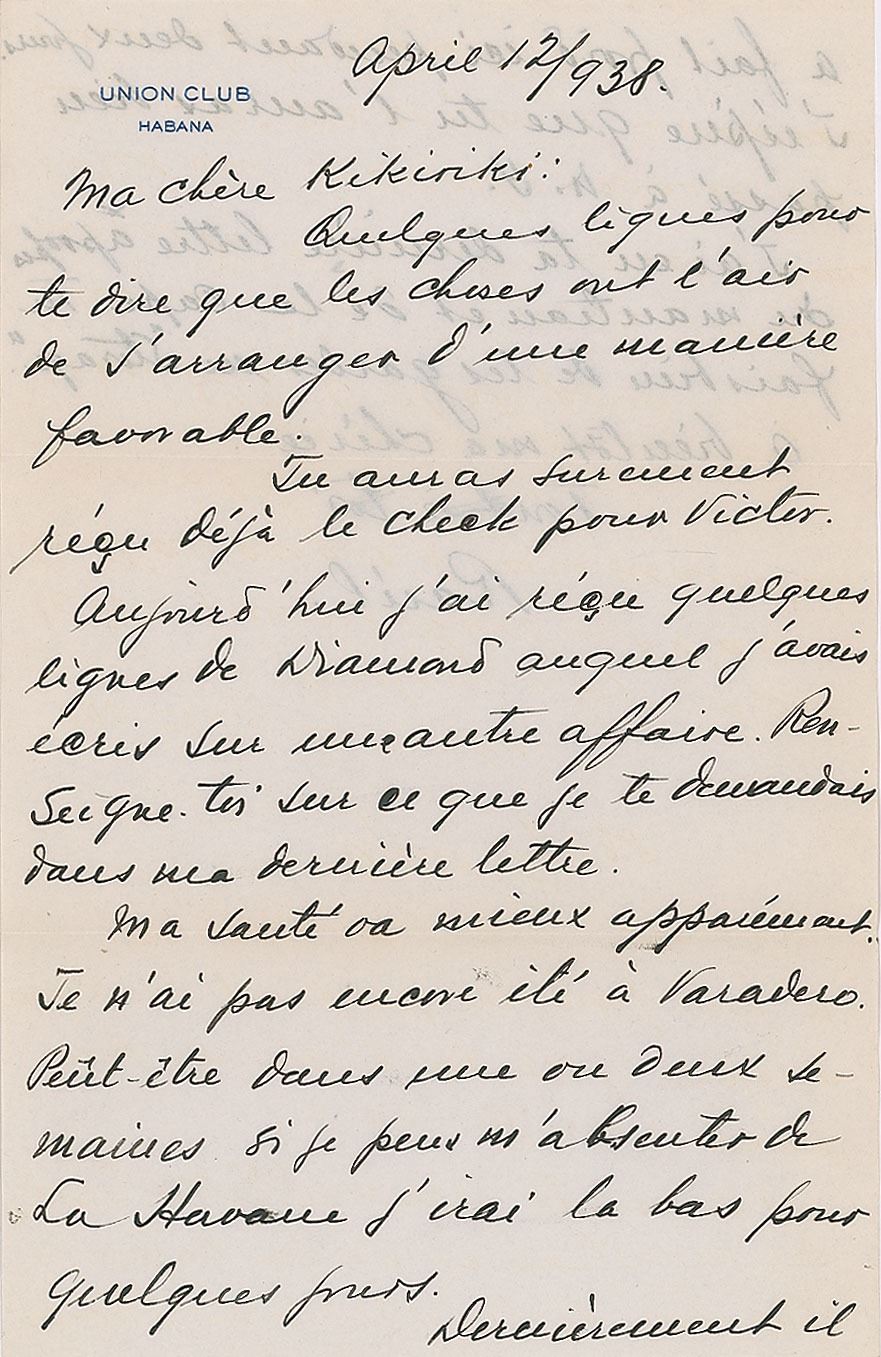 April 12/938.
UNION CLUB
HABANA
Ma chère Kikiriki:
Quelques lignes pour
te dire que les choses ont l'air
de s'arranger d'une manière
favorable.
Tu auras surement
réçu déjà le check pour Victor.
Aujourd'hui j'ai réçu quelques
lignes de Diamond auquel j'avais
écris sur une autre affaire. Ren-
seigne-toi sur ce que je te demandais
dans ma dernière lettre.
Ma santé va mieux
Je n'ai pas encore été à Varadero.
Peût-être dans une ou deux se-
maines si je peux m'absenter de
La Havane j'irai la bas pour
quelques jours.
Dernièrement il